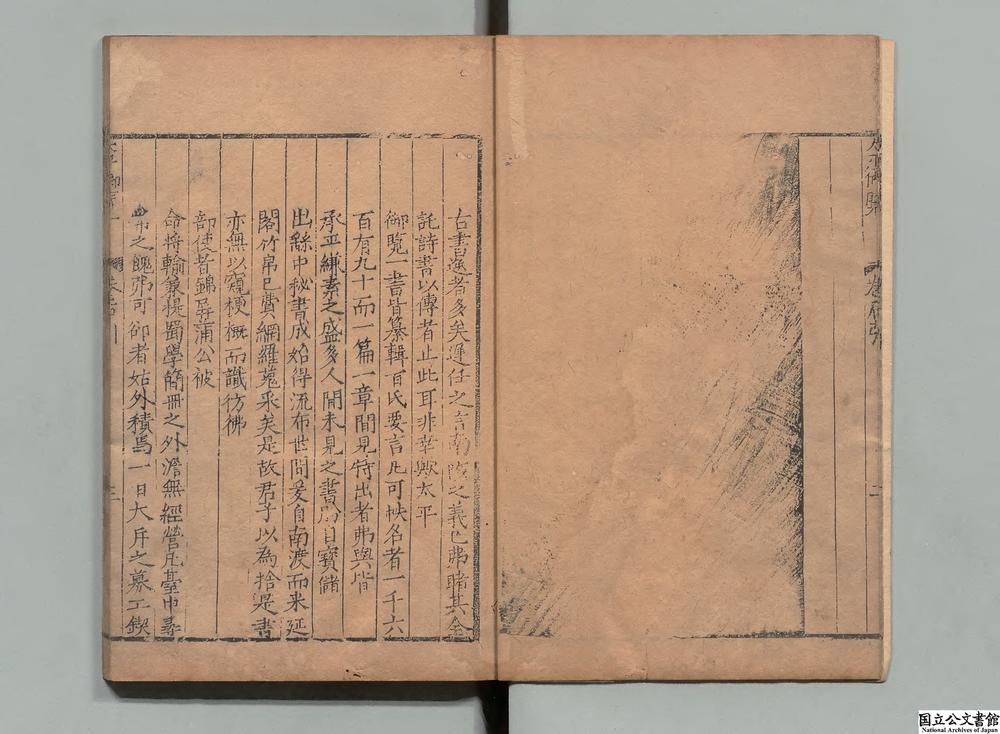 古書逸者多矣遲任之言南陔之義已弗睹其全
託詩書以傳者止此耳非幸歟太平
御覽一書皆纂輯百氏要言凡可帙名者一千六
百有九十而一篇一章間見特出者弗與偕
承平縑素之盛多人間未見之書闕目寶儲
出繇中秘書成始得流布世間爰自南渡而來延
閣竹帛已費網羅蒐采矣是故君子以為捨是書
亦無以窺梗槩而識彷彿
部使者錦屏蒲公被
命將輸兼提蜀學簡冊之外澹無經營凡臺中
之餽弗可卻者姑外積焉一日大斥之募工鍥
國立公文書館
National Archives of Japan